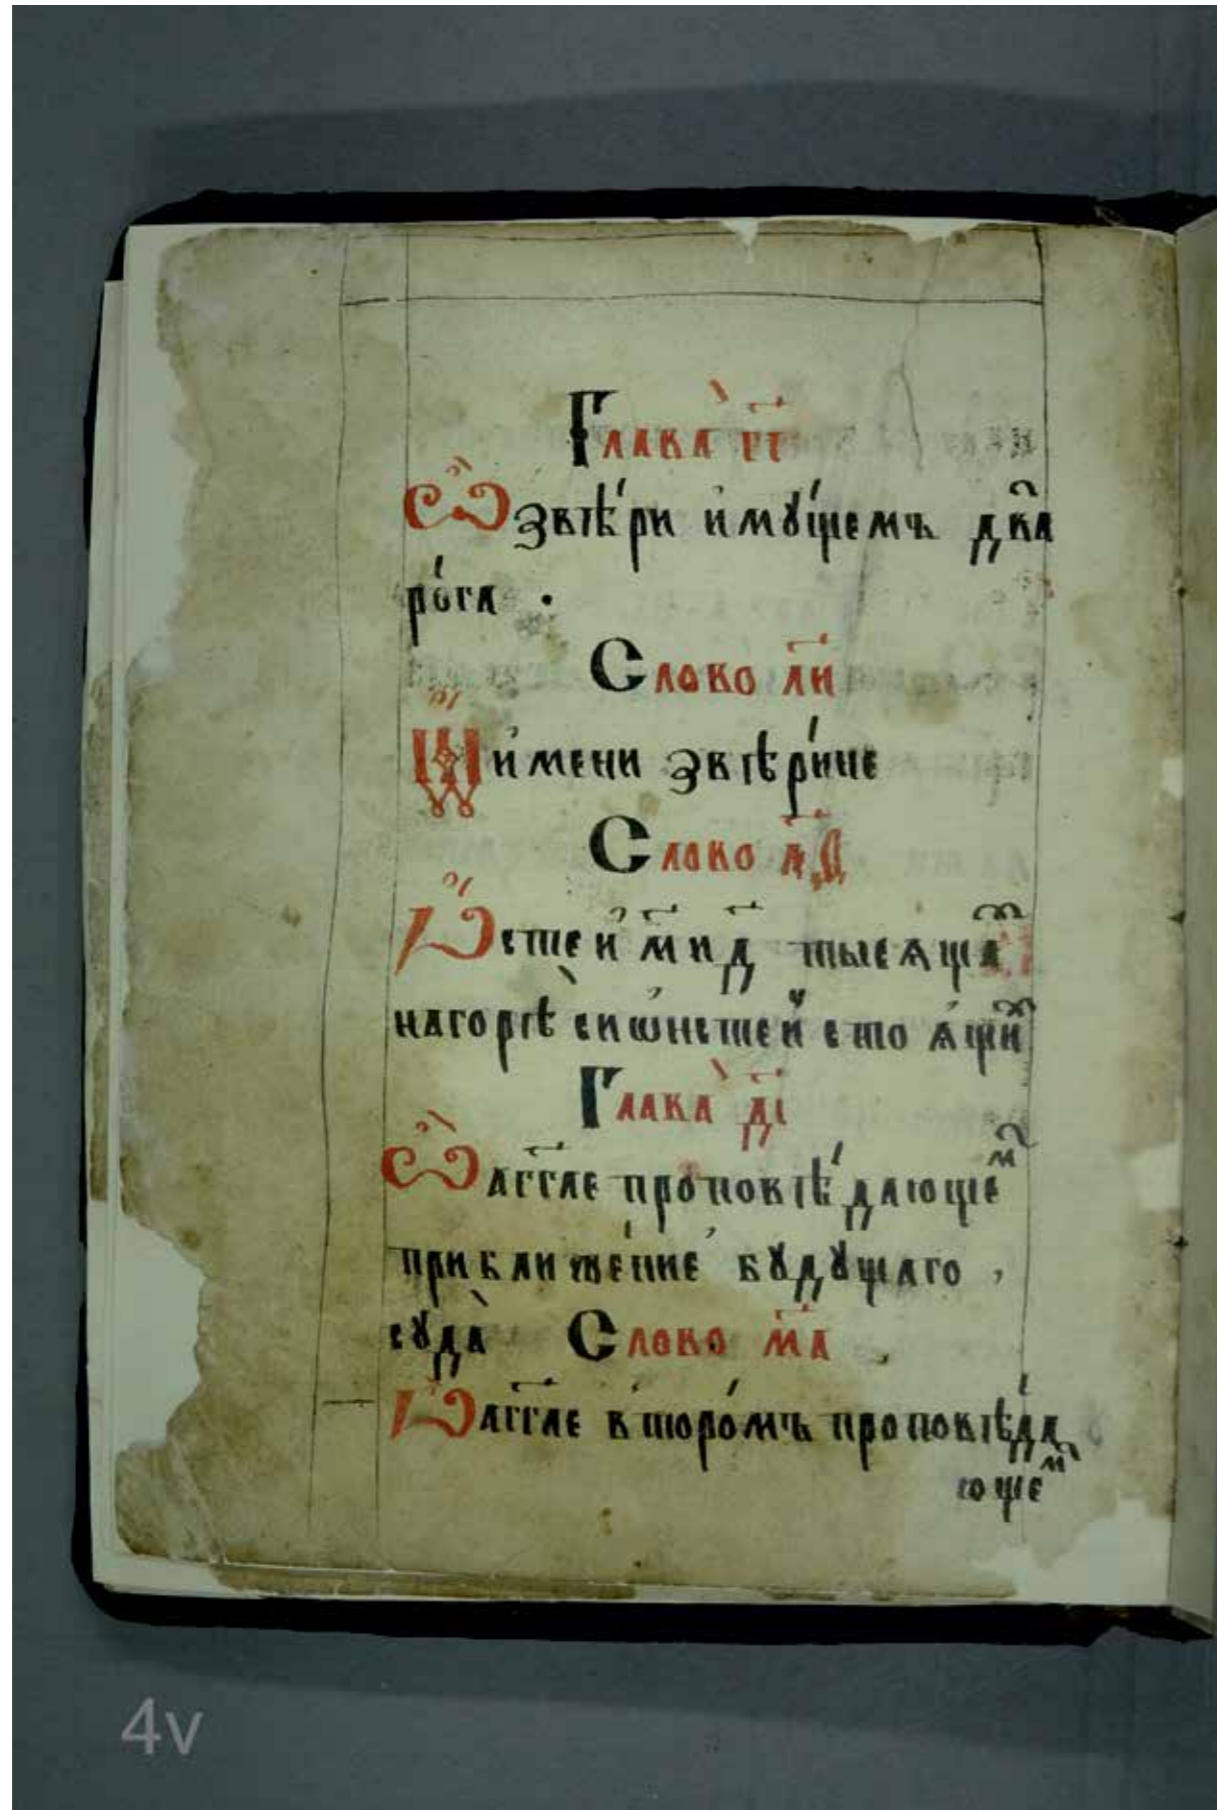 Глава̀ г҃і
Ѽ звѣ́ри и҆мꙋ́щемъ два̑
ро́га .
Слово л҃и
Ѽ и҆мени звѣри́не
Слово л҃ѳ
Ѽ стей м҃ и д҃ тысѧща̑
на горѣ̀ сиѡ́нстей стоѧ́щи̑
Глава̀ д҃і
Ѽ агг҃ле проповѣ́дающеⷨ
приближе́ние бꙋдꙋщаго ,
сꙋда̀ Слово м҃а
Ѽ агг҃ле второ́мъ проповѣ́да
ющеⷨ
4v